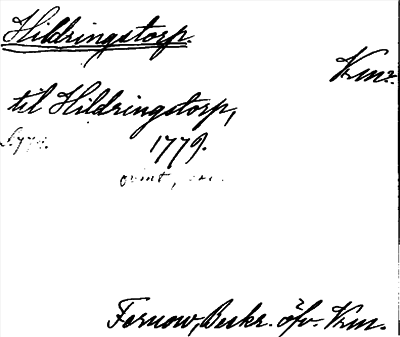 Hildringstorp
Vrml.
til Hildringstorp,
1779.
Fernow, Beskr. öfv. Vrm.